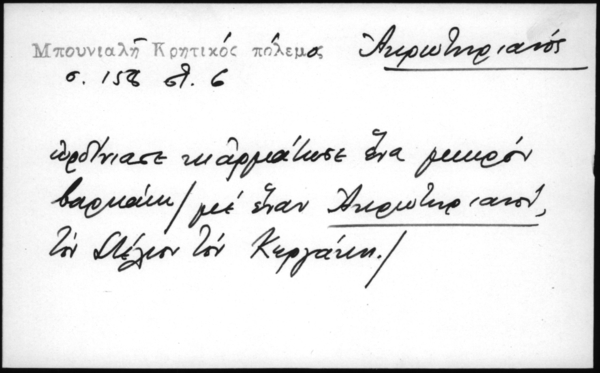 Μπουνιαλῆ Κρητικός πόλεμο Ἀκρωτηριανός
σ. 158 στ. 6
ὠρδίνιασε κι ἀρμάτωσε ἕνα μικρόν
βαρκάκι / μέ ἕναν Ἀκρωτηριανόν,
τόν Στέλιον τόν Κεργάκη. /